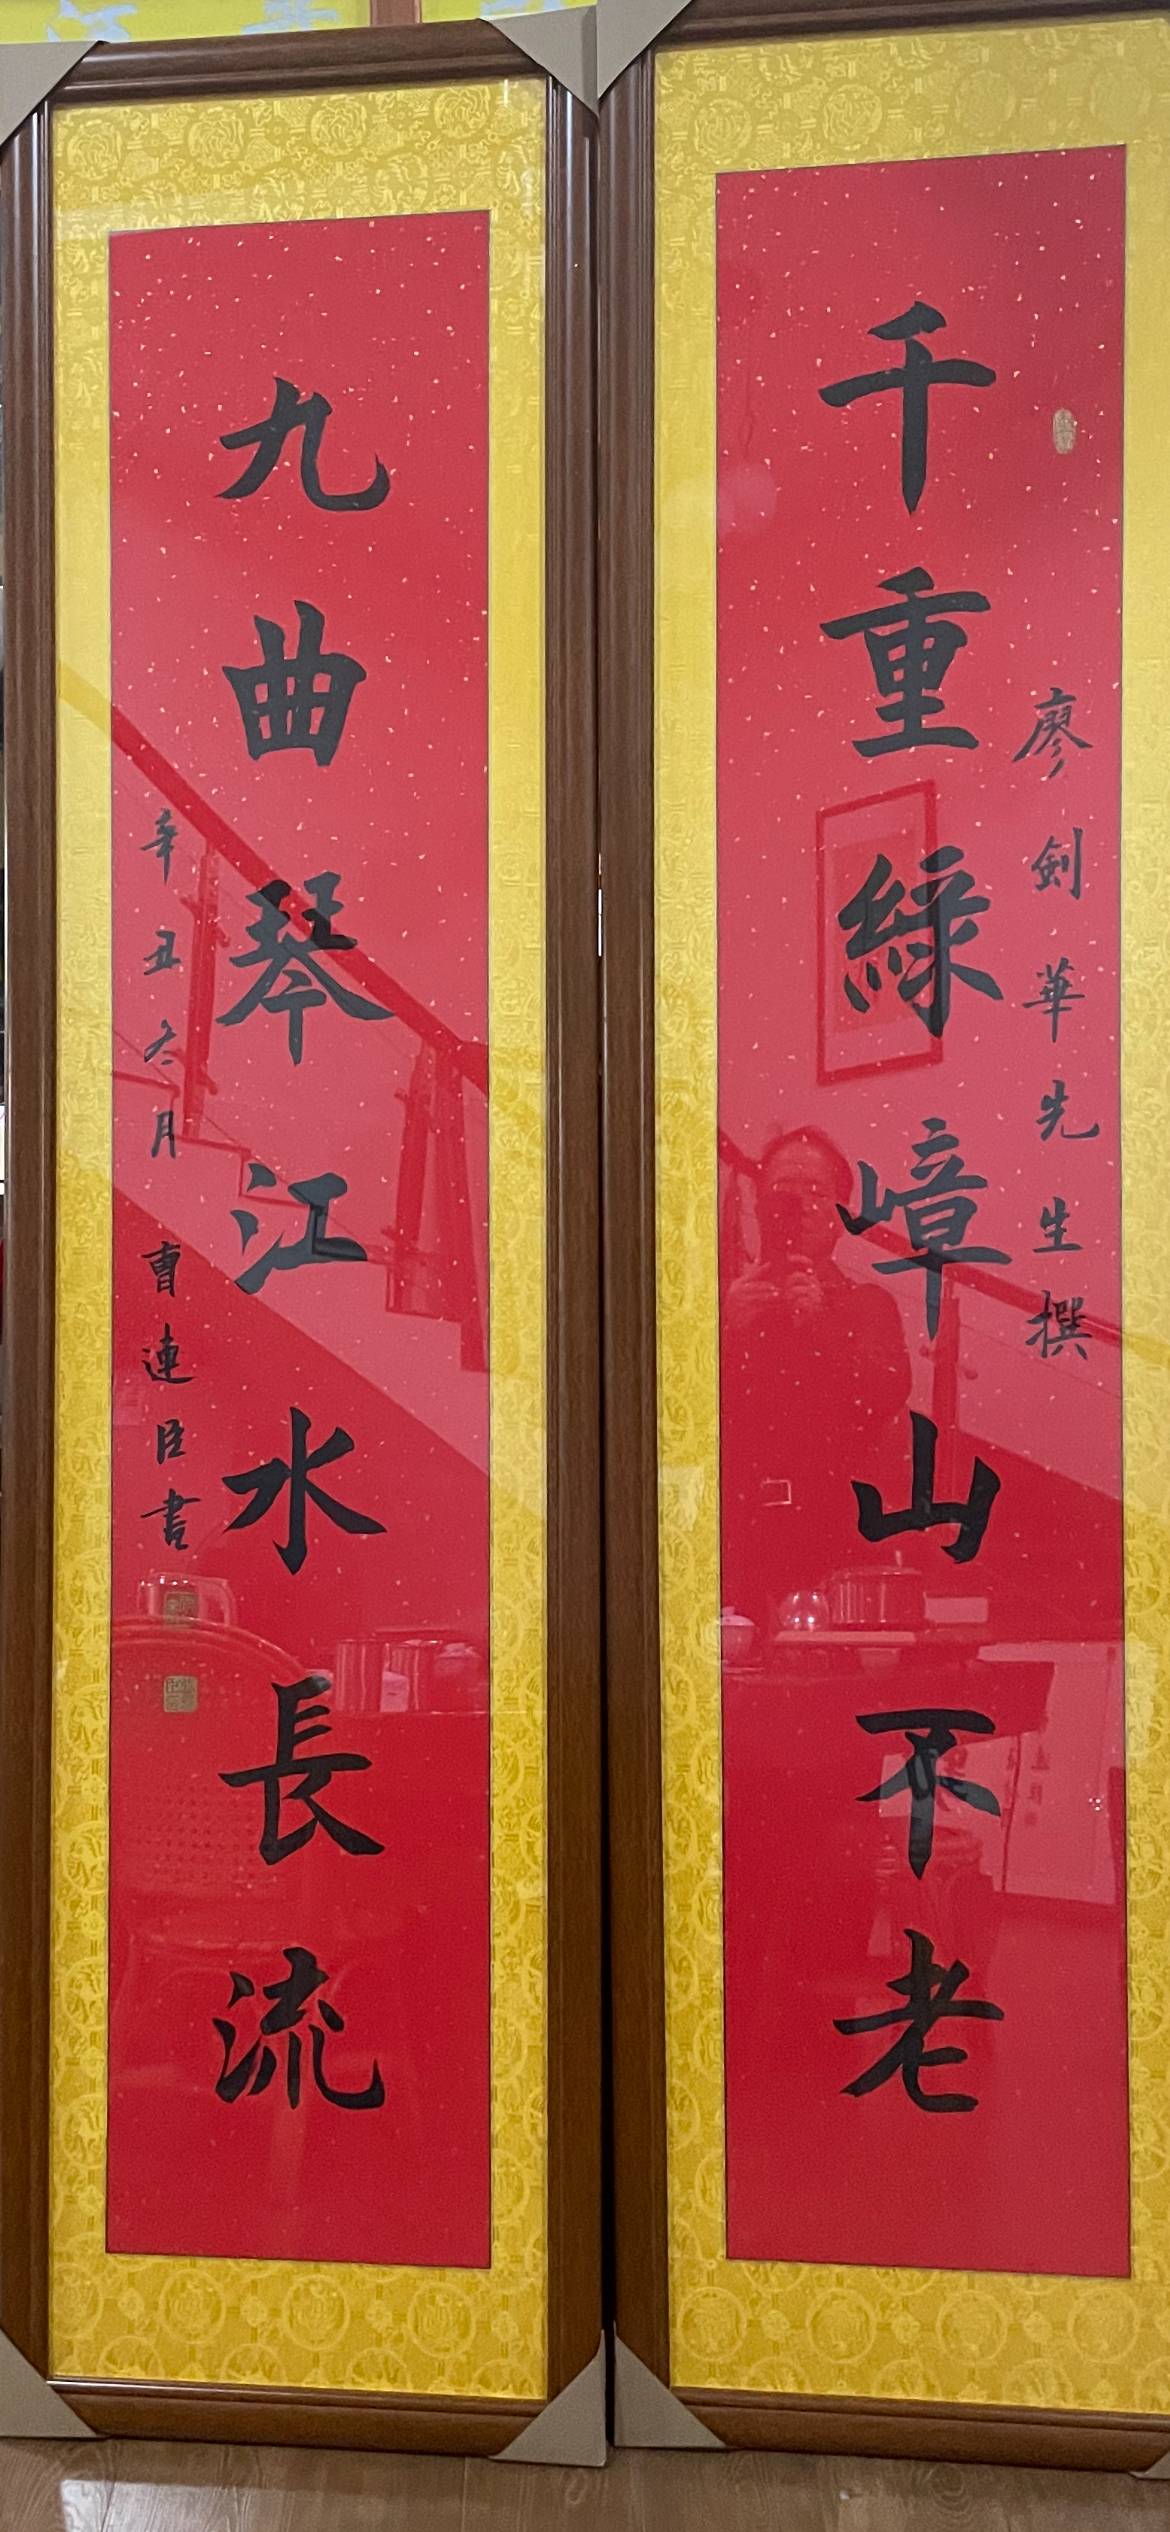 千重綠嶂山不老
廖劍華先生撰
九曲琴江水長流
辛丑冬月 曹連臣書